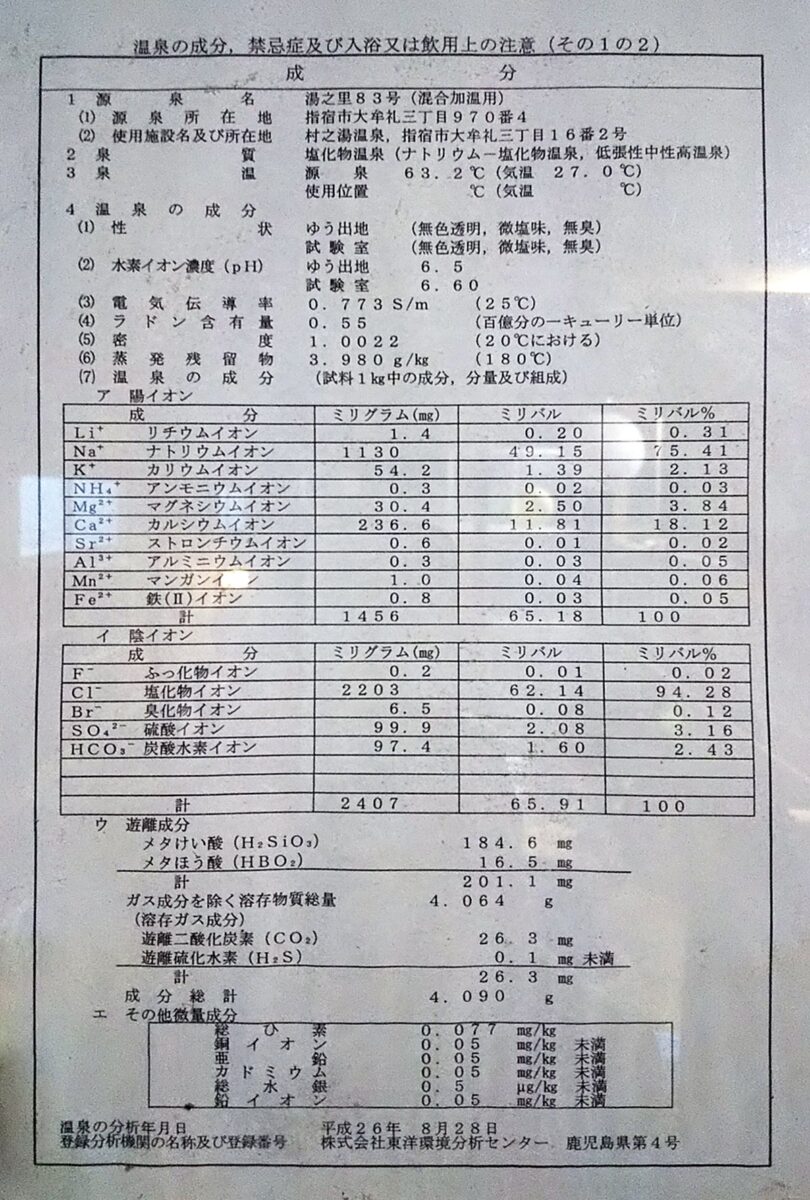 温泉の成分，禁忌症及び入浴又は飲用上の注意（その１の２）
成　　　分
１ 源　泉　名　湯之里８３号（混合加温用）
⑴ 源泉所在地　指宿市大牟礼三丁目９７０番４
⑵ 使用施設名及び所在地　村之湯温泉，指宿市大牟礼三丁目１６番２号
２ 泉　　　質　塩化物温泉（ナトリウム－塩化物温泉，低張性中性高温泉）
３ 泉　　　温　源　泉　６３．２℃（気温　２７．０℃）
使用位置　　℃（気温　　℃）
４ 温泉の成分
⑴ 性　　　状　ゆう出地　（無色透明，微塩味，無臭）
試験室　（無色透明，微塩味，無臭）
⑵ 水素イオン濃度（pH）　ゆう出地　６．５
試験室　６．６０
⑶ 電気伝導率　０．７７３ S/m　（２５℃）
⑷ ラドン含有量　０．５５　（百億分の一キューリー単位）
⑸ 密　　　度　１．００２２　（２０℃における）
⑹ 蒸発残留物　３．９８０ g/kg　（１８０℃）
⑺ 温泉の成分　（試料１kg中の成分，分量及び組成）
ア　陽イオン
成　　分　ミリグラム(mg)　ミリバル　ミリバル％
Li⁺　リチウムイオン　１．４　０．２０　０．３１
Na⁺　ナトリウムイオン　１１３０　４９．１５　７５．４１
K⁺　カリウムイオン　５４．２　１．３９　２．１３
NH₄⁺　アンモニウムイオン　０．３　０．０２　０．０３
Mg²⁺　マグネシウムイオン　３０．４　２．５０　３．８４
Ca²⁺　カルシウムイオン　２３６．６　１１．８１　１８．１２
Sr²⁺　ストロンチウムイオン　０．６　０．０１　０．０２
Al³⁺　アルミニウムイオン　０．３　０．０３　０．０５
Mn²⁺　マンガンイオン　１．０　０．０４　０．０６
Fe²⁺　鉄(Ⅱ)イオン　０．８　０．０３　０．０５
計　１４５６　６５．１８　１００
イ　陰イオン
成　　分　ミリグラム(mg)　ミリバル　ミリバル％
F⁻　ふっ化物イオン　０．２　０．０１　０．０２
Cl⁻　塩化物イオン　２２０３　６２．１４　９４．２８
Br⁻　臭化物イオン　６．５　０．０８　０．１２
SO₄²⁻　硫酸イオン　９９．９　２．０８　３．１６
HCO₃⁻　炭酸水素イオン　９７．４　１．６０　２．４３
計　２４０７　６５．９１　１００
ウ　遊離成分
メタけい酸（H₂SiO₃）　１８４．６　mg
メタほう酸（HBO₂）　１６．５　mg
計　２０１．１　mg
ガス成分を除く溶存物質総量　４．０６４　g
（溶存ガス成分）
遊離二酸化炭素（CO₂）　２６．３　mg
遊離硫化水素（H₂S）　０．１　mg　未満
計　２６．３　mg
成分総計　４．０９０　g
エ　その他微量成分
総ひ素　０．０７７　mg/kg
銅イオン　０．０５　mg/kg　未満
亜鉛　０．０５　mg/kg　未満
カドミウム　０．０５　mg/kg　未満
総水銀　０．５　μg/kg　未満
鉛イオン　０．０５　mg/kg　未満
温泉の分析年月日　平成２６年　８月２８日
登録分析機関の名称及び登録番号　株式会社東洋環境分析センター　鹿児島県第４号